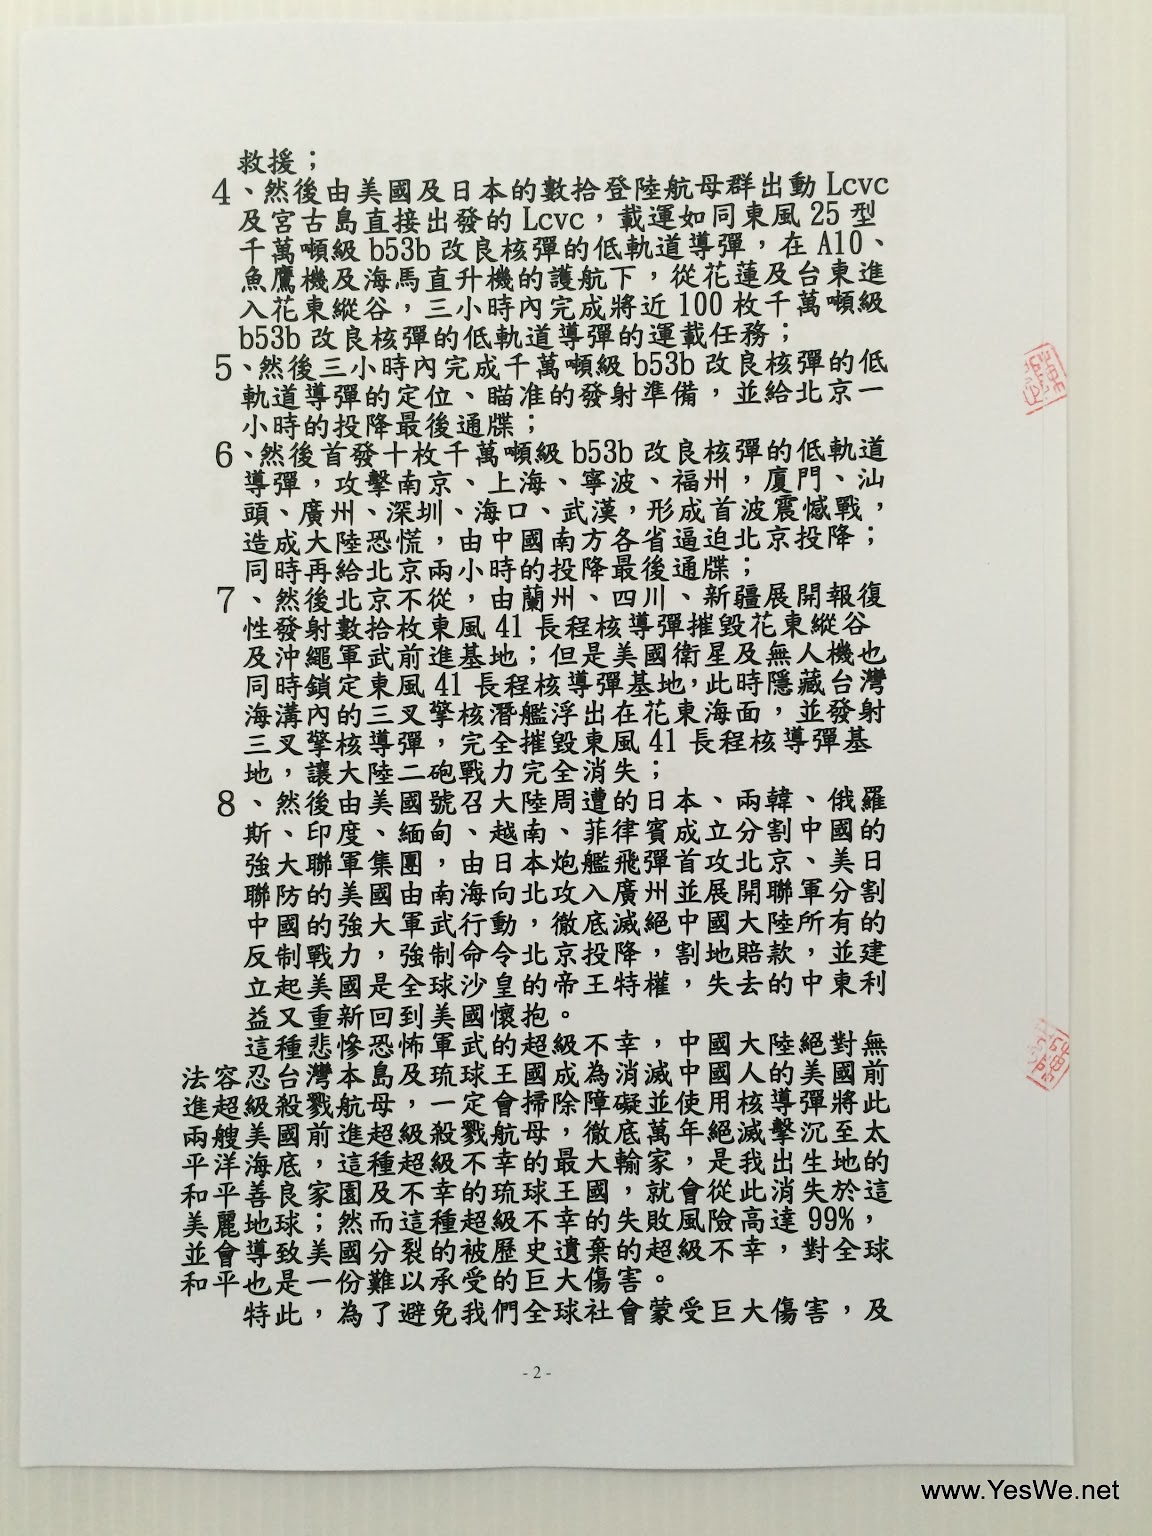 救援；
4、然後由美國及日本的數拾登陸航母群出動 Lcvc
及宮古島直接出發的 Lcvc，載運如同東風 25 型
千萬噸級 b53b 改良核彈的低軌道導彈，在 A10、
魚鷹機及海馬直升機的護航下，從花蓮及台東進
入花東縱谷，三小時內完成將近 100 枚千萬噸級
b53b 改良核彈的低軌道導彈的運載任務；
5、然後三小時內完成千萬噸級 b53b 改良核彈的低
軌道導彈的定位、瞄准的發射準備，並給北京一
小時的投降最後通牒；
6、然後首發十枚千萬噸級 b53b 改良核彈的低軌道
導彈，攻擊南京、上海、寧波、福州，廈門、汕
頭、廣州、深圳、海口、武漢，形成首波震憾戰，
造成大陸恐慌，由中國南方各省逼迫北京投降；
同時再給北京兩小時的投降最後通牒；
7、然後北京不從，由蘭州、四川、新疆展開報復
性發射數拾枚東風 41 長程核導彈摧毀花東縱谷
及沖繩軍武前進基地；但是美國衛星及無人機也
同時鎖定東風 41 長程核導彈基地，此時隱藏台灣
海溝內的三叉擎核潛艦浮出在花東海面，並發射
三叉擎核導彈，完全摧毀東風 41 長程核導彈基
地，讓大陸二砲戰力完全消失；
8、然後由美國號召大陸周遭的日本、兩韓、俄羅
斯、印度、緬甸、越南、菲律賓成立分割中國的
強大聯軍集團，由日本炮艦飛彈首攻北京、美日
聯防的美國由南海向北攻入廣州並展開聯軍分割
中國的強大軍武行動，徹底滅絕中國大陸所有的
反制戰力，強制命令北京投降，割地賠款，並建
立起美國是全球沙皇的帝王特權，失去的中東利
益又重新回到美國懷抱。
這種悲慘恐怖軍武的超級不幸，中國大陸絕對無
法容忍台灣本島及琉球王國成為消滅中國人的美國前
進超級殺戮航母，一定會掃除障礙並使用核導彈將此
兩艘美國前進超級殺戮航母，徹底萬年絕滅擊沉至太
平洋海底，這種超級不幸的最大輸家，是我出生地的
和平善良家園及不幸的琉球王國，就會從此消失於這
美麗地球；然而這種超級不幸的失敗風險高達 99%，
並會導致美國分裂的被歷史遺棄的超級不幸，對全球
和平也是一份難以承受的巨大傷害。
特此，為了避免我們全球社會蒙受巨大傷害，及
- 2 -
www.YesWe.net